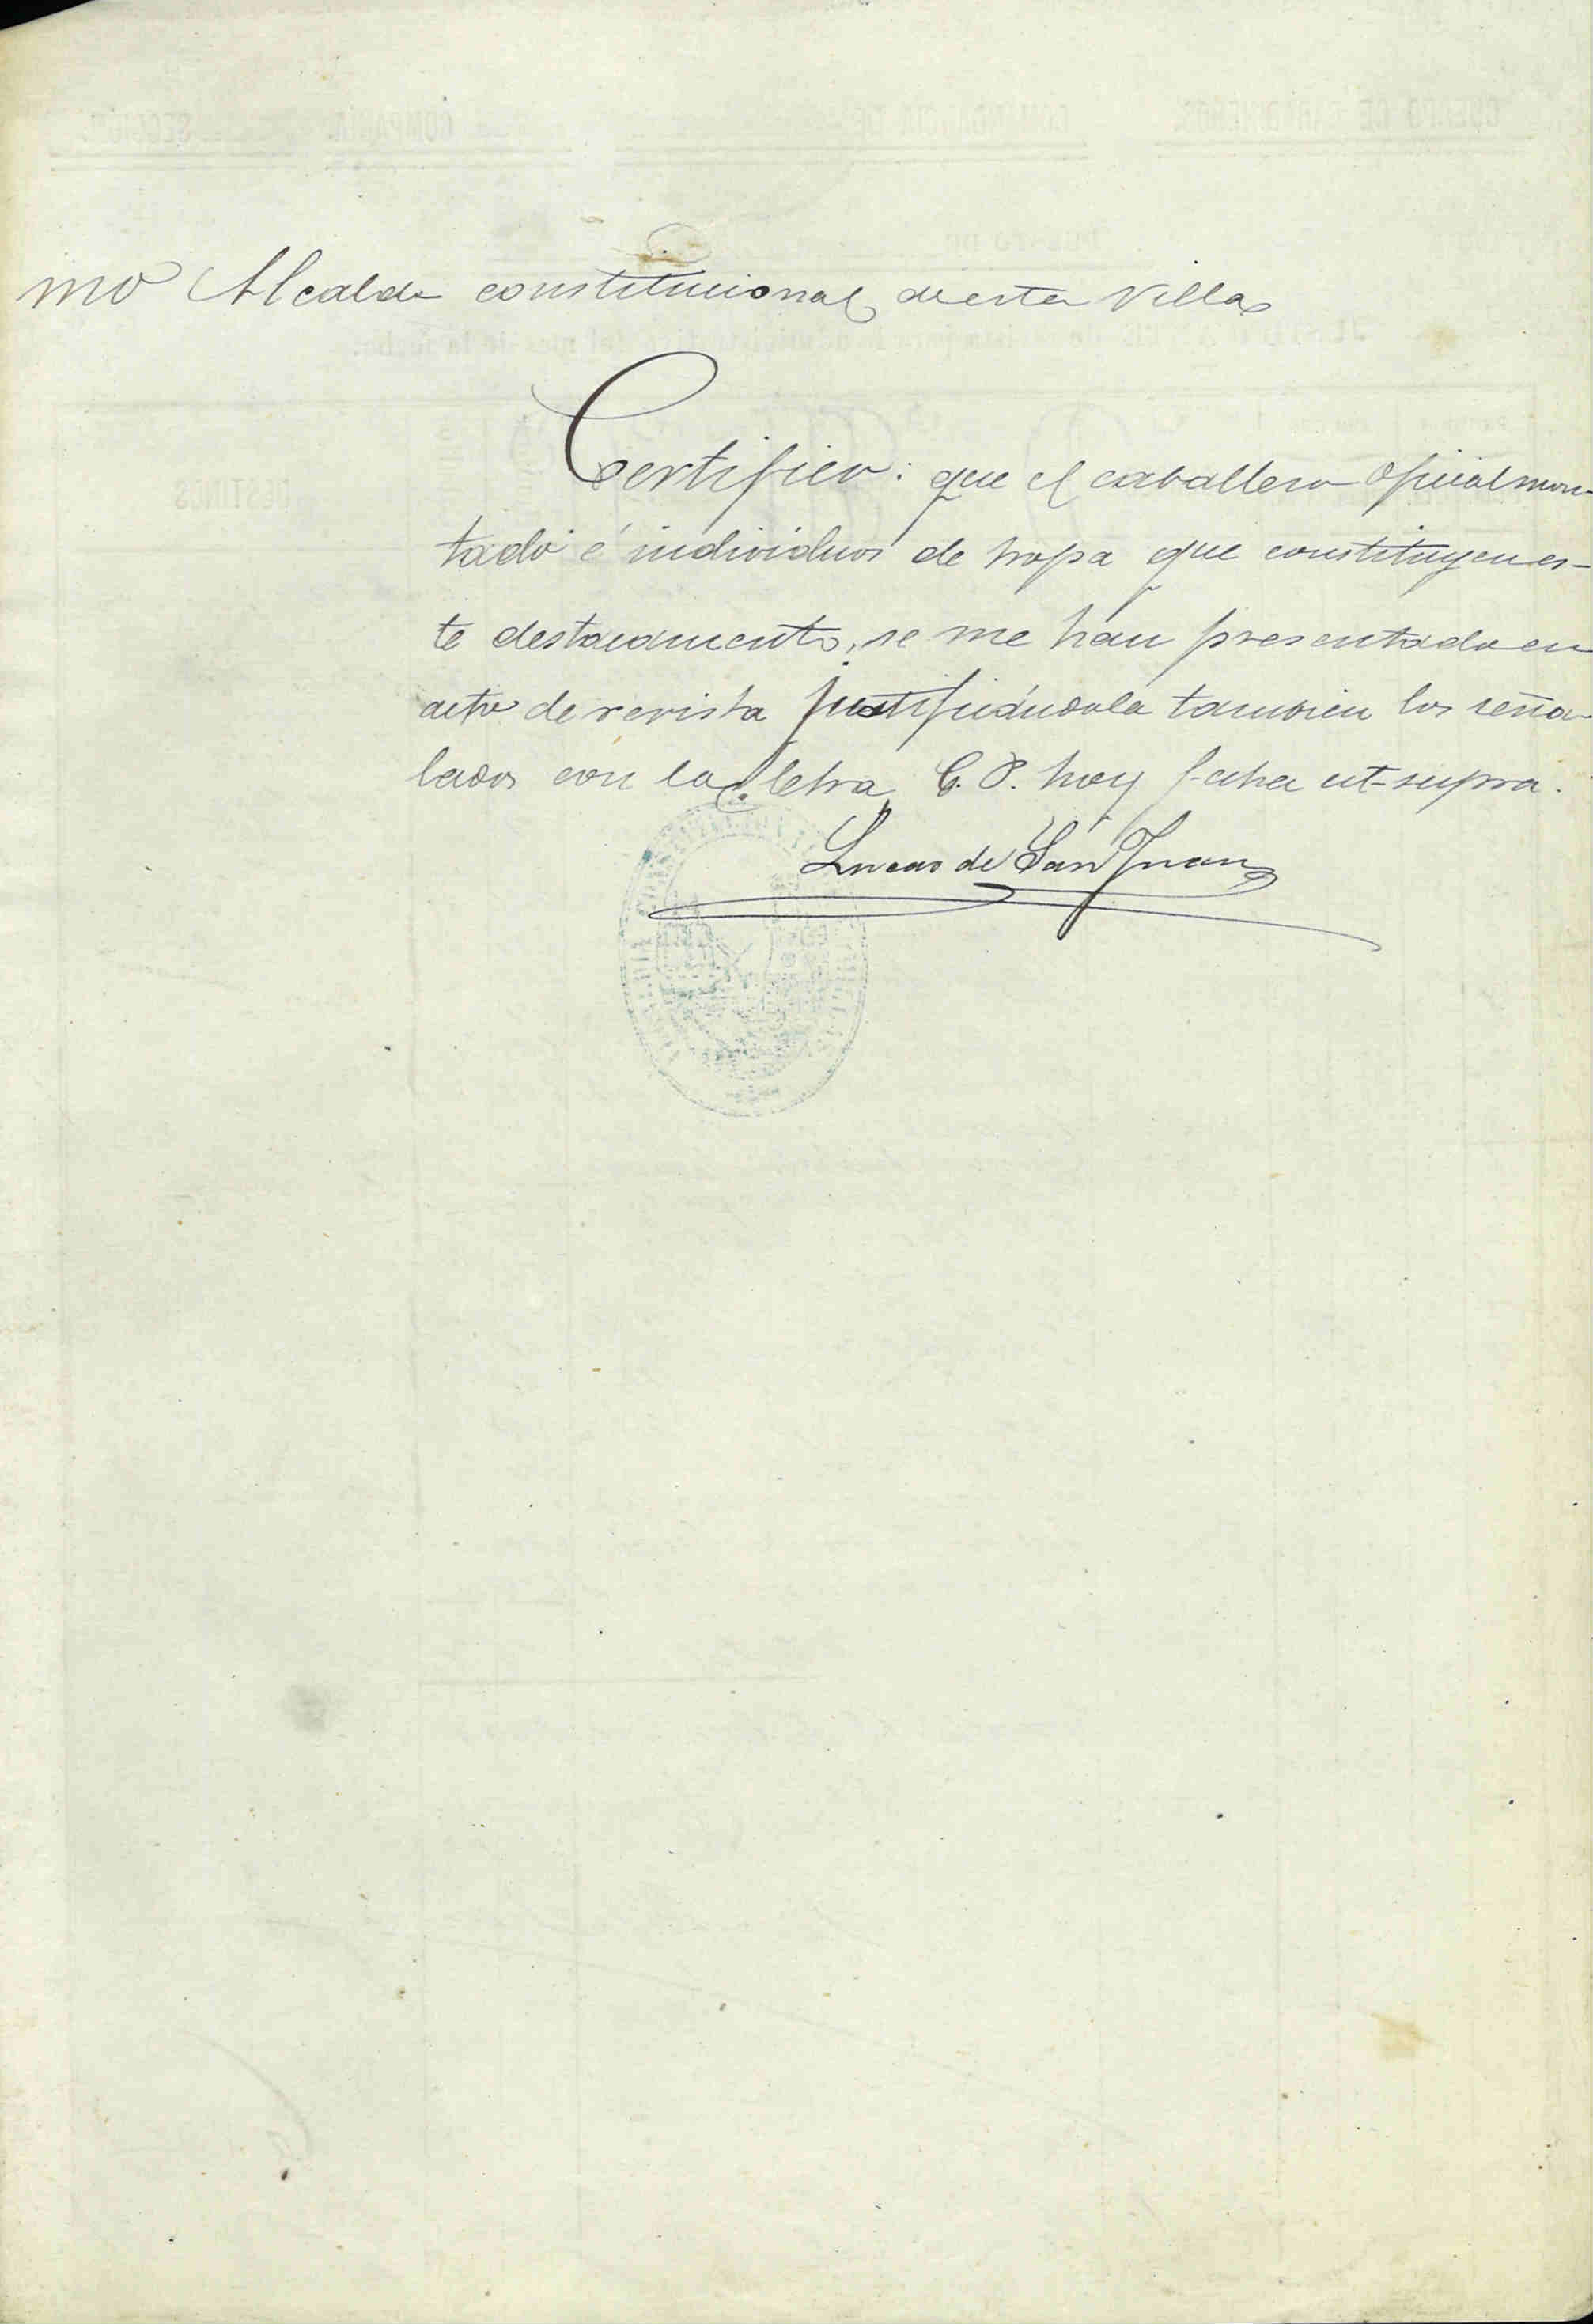 mo Alcalde constitucional de esta Villa
Certifico: que el caballero Oficial mon-
tado é individuos de tropa que constituyen es-
te destacamento, se me han presentado en
acto de revista justificándola tambien los seña-
lados con la letra C. P. hoy fecha ut-supra.
Lucas de San Juan